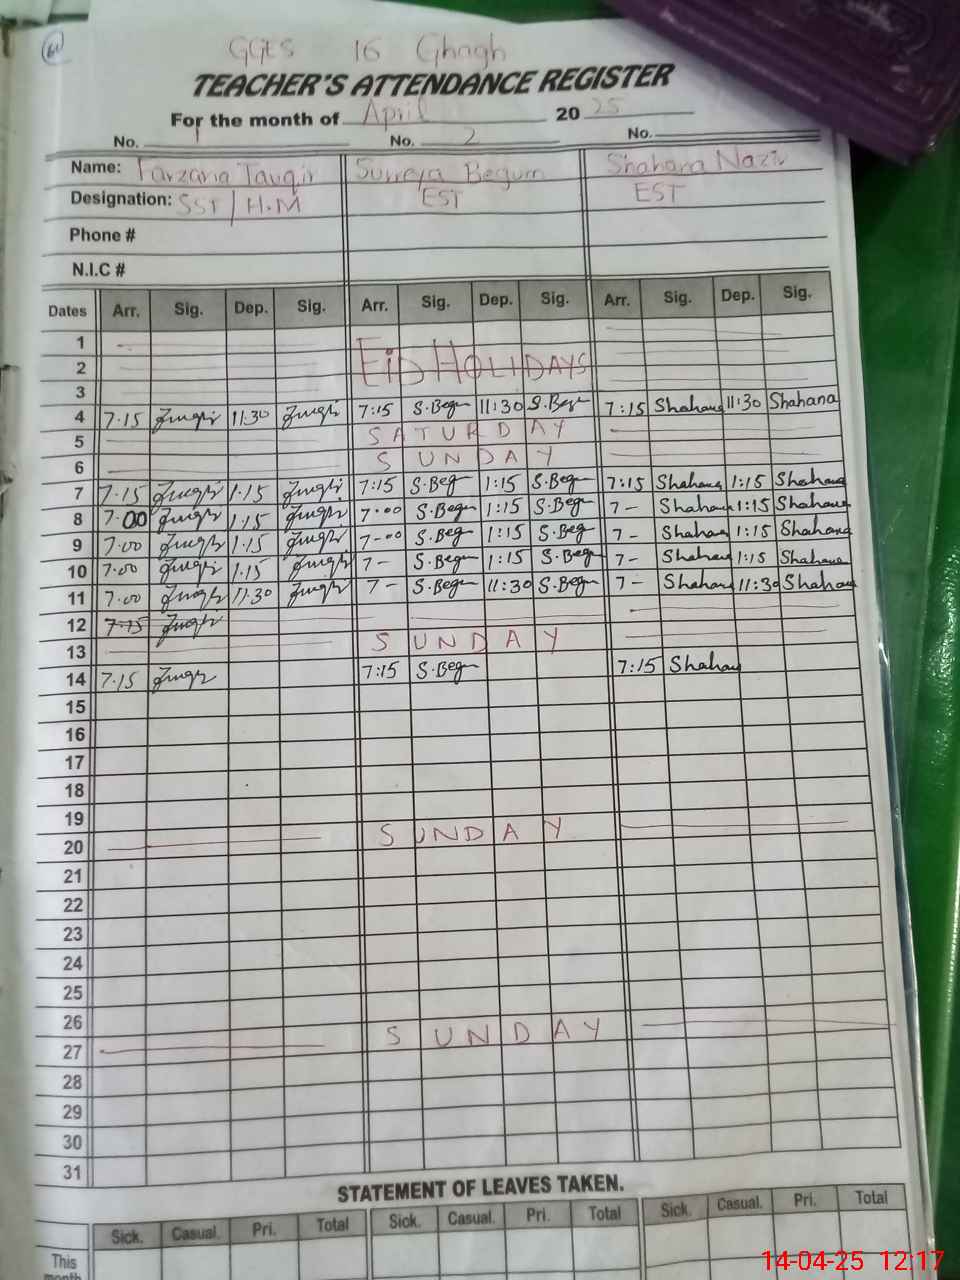 61
GGES 16 Ghagh
TEACHER'S ATTENDANCE REGISTER
For the month of April 20 25
No. 1 No. 2 No.
Name: Farzana Tauqir Surreya Begum Shahana Nazir
Designation: SST/H.M EST EST
Phone #
N.I.C #
Dates Arr. Sig. Dep. Sig. Arr. Sig. Dep. Sig. Arr. Sig. Dep. Sig.
1
2 EiD HOLIDAYS
3
4 7.15 11.30 7:15 S.Begum 11:30 S.Beg 7:15 Shahana 11:30 Shahana
5 SATURDAY
6 SUNDAY
7 7.15 1.15 7:15 S.Beg 1:15 S.Beg 7:15 Shahana 1:15 Shahana
8 7.00 1.15 7.00 S.Begum 1:15 S.Beg 7- Shahana 1:15 Shahana
9 7.00 1.15 7-00 S.Beg 1:15 S.Beg 7- Shahana 1:15 Shahana
10 7.00 1.15 7- S.Begum 1:15 S.Beg 7- Shahana 1:15 Shahana
11 7.00 11.30 7- S.Begum 11:30 S.Beg 7- Shahana 11:30 Shahana
12 7.15
13 SUNDAY
14 7.15 7:15 S.Begum 7:15 Shahana
15
16
17
18
19
20 SUNDAY
21
22
23
24
25
26
27 SUNDAY
28
29
30
31
STATEMENT OF LEAVES TAKEN.
Sick. Casual. Pri. Total Sick. Casual. Pri. Total Sick. Casual. Pri. Total
This
month
14-04-25 12:17